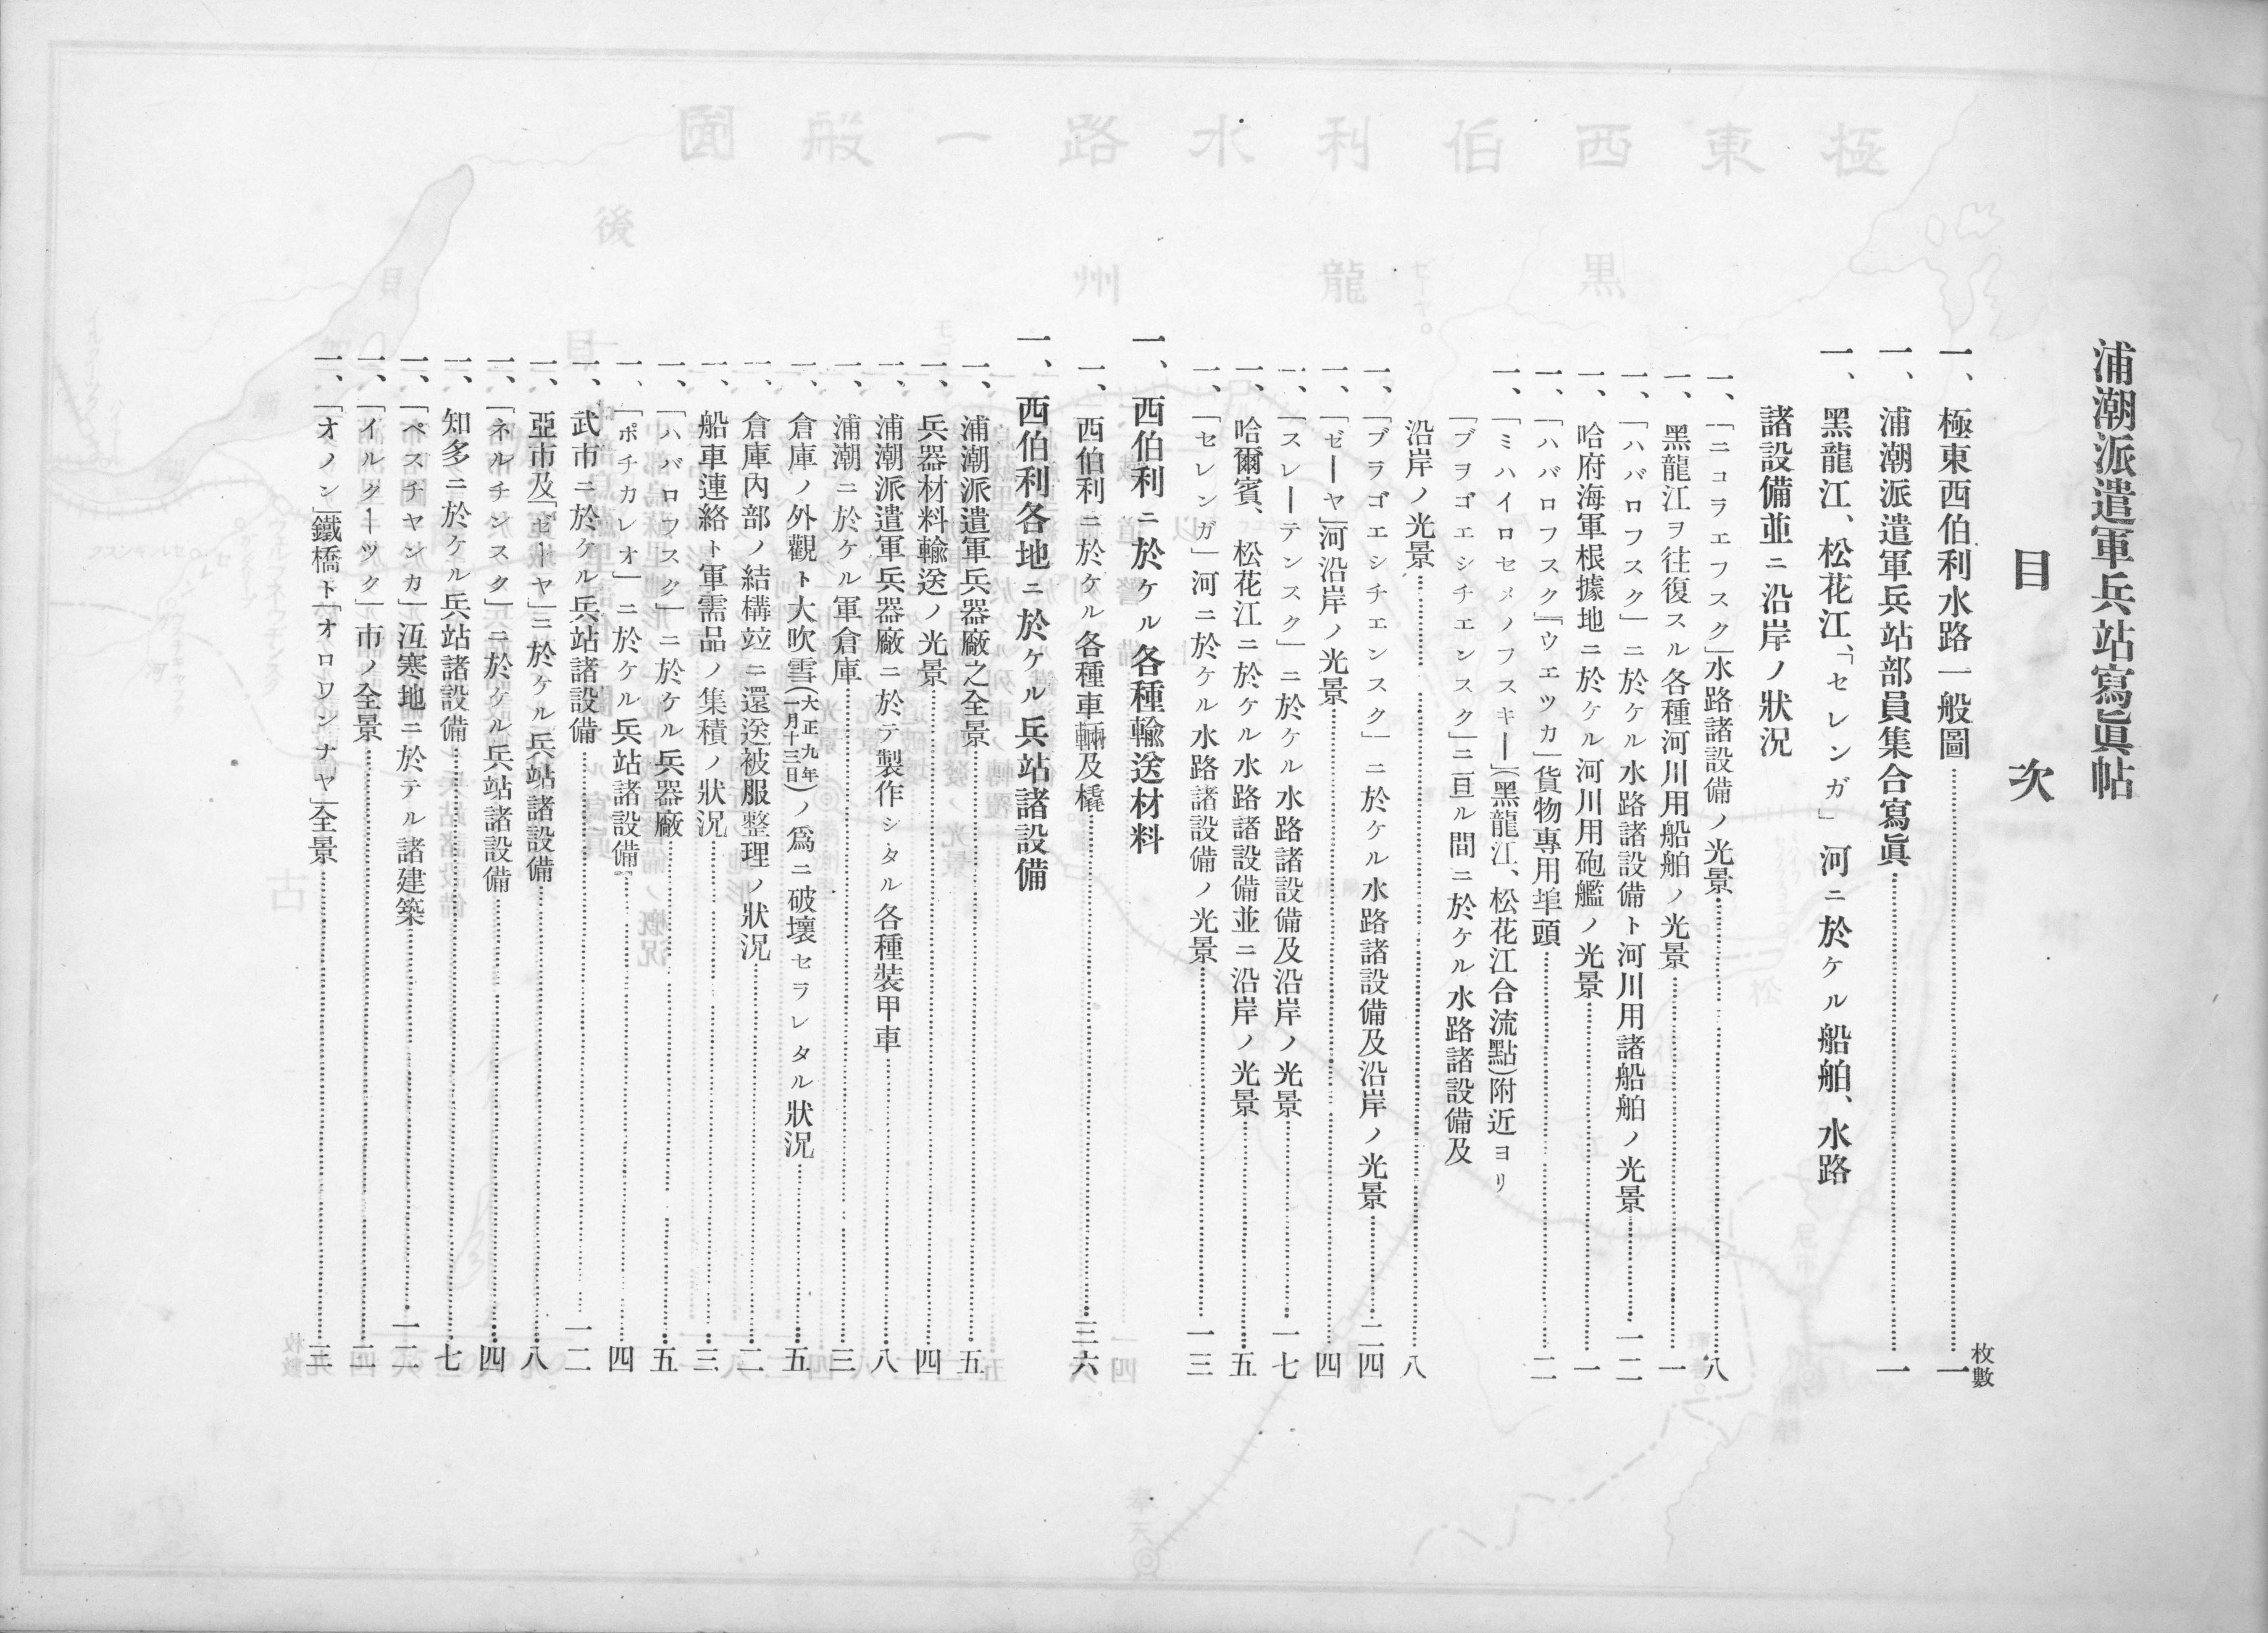 浦潮派遣軍兵站寫眞帖
目次
枚數
一、極東西伯利水路一般圖…一
一、浦潮派遣軍兵站部員集合寫眞…一
一、黑龍江、松花江、「セレンガ」河ニ於ケル船舶、水路
諸設備並ニ沿岸ノ狀況
一、「ニコラエフスク」水路諸設備ノ光景…八
一、黑龍江ヲ往復スル各種河川用船舶ノ光景…一
一、「ハバロフスク」ニ於ケル水路諸設備ト河川用諸船舶ノ光景…一二
一、哈府海軍根據地ニ於ケル河川用砲艦ノ光景…一
一、「ハバロフスク」「ウエツカ」貨物專用埠頭…二
一、「ミハイロセメノフスキー」(黑龍江、松花江合流點)附近ヨリ
「ブラゴエシチエンスク」ニ亘ル間ニ於ケル水路諸設備及
沿岸ノ光景…八
一、「ブラゴエシチエンスク」ニ於ケル水路諸設備及沿岸ノ光景…二四
一、「ゼーヤ」河沿岸ノ光景…四
一、「スレーテンスク」ニ於ケル水路諸設備及沿岸ノ光景…一七
一、哈爾賓、松花江ニ於ケル水路諸設備並ニ沿岸ノ光景…五
一、「セレンガ」河ニ於ケル水路諸設備ノ光景…一三
一、西伯利ニ於ケル各種輸送材料
一、西伯利ニ於ケル各種車輛及橇…三六
一、西伯利各地ニ於ケル兵站諸設備
一、浦潮派遣軍兵器廠之全景…五
一、兵器材料輸送ノ光景…四
一、浦潮派遣軍兵器廠ニ於テ製作シタル各種裝甲車…八
一、浦潮ニ於ケル軍倉庫…三
一、倉庫ノ外觀ト大吹雪(大正九年一月十三日)ノ爲ニ破壞セラレタル狀況…五
一、倉庫內部ノ結構竝ニ還送被服整理ノ狀況…二
一、船車連絡ト軍需品ノ集積ノ狀況…三
一、「ハバロフスク」ニ於ケル兵器廠…五
一、「ポチカレオ」ニ於ケル兵站諸設備…四
一、武市ニ於ケル兵站諸設備…一二
一、亞市及「ゼーヤ」ニ於ケル兵站諸設備…八
一、「ネルチンスク」ニ於ケル兵站諸設備…四
一、知多ニ於ケル兵站諸設備…七
一、「ペスチヤンカ」沍寒地ニ於テル諸建築…一二
一、「イルクーツク」市ノ全景…二
一、「オノン」鐵橋ト「オロワンナヤ」全景…三